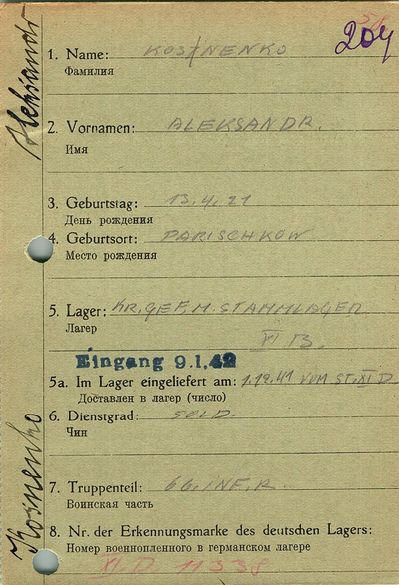 204
Kosnenko Aleksandr
1. Name: KOSNENKO
Фамилия
2. Vornamen: ALEKSANDR.
Имя
3. Geburtstag: 13.4.21
День рождения
4. Geburtsort: PARISCHKOW
Место рождения
5. Lager: KR.GEF.M.STAMMLAGER
Лагер
XI B.
Eingang 9.1.42
5a. Im Lager eingeliefert am: 1.12.41 VOM ST.XI D
Доставлен в лагер (число)
6. Dienstgrad: SOLD.
Чин
7. Truppenteil: 66.INF.R.
Воинская часть
8. Nr. der Erkennungsmarke des deutschen Lagers:
Номер военнопленного в германском лагере
XI D 11338